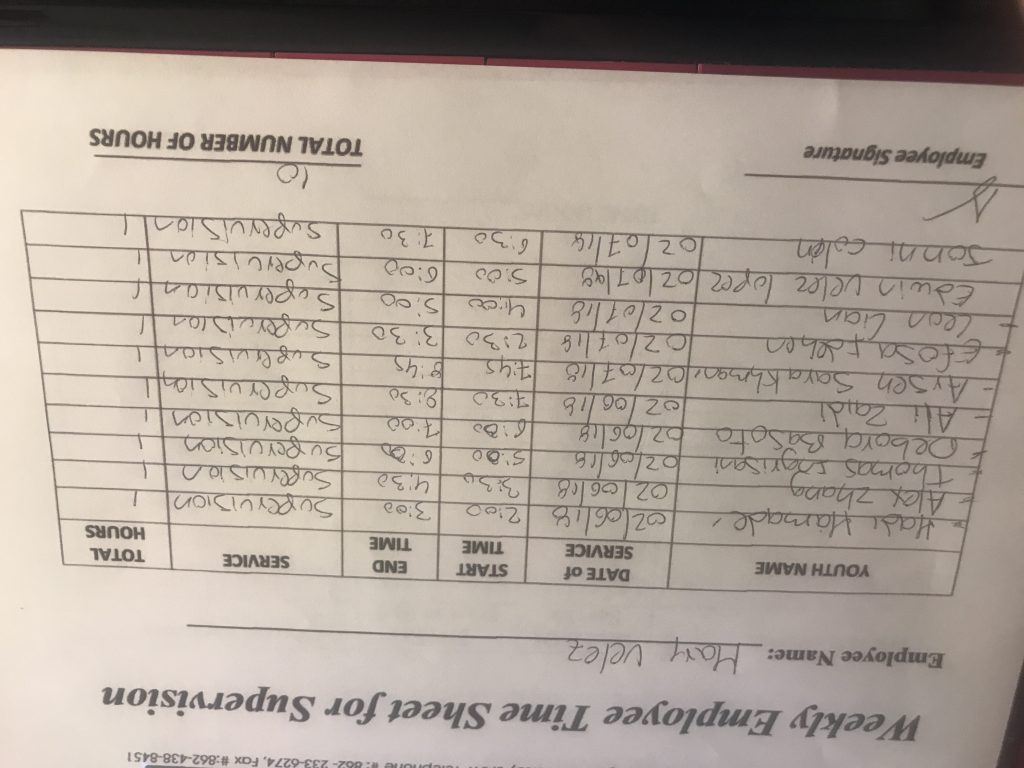 Telephone #: 862- 233-6274, Fax #:862-438-8451
Weekly Employee Time Sheet for Supervision
Employee Name: Mary Velez
YOUTH NAME DATE of SERVICE START TIME END TIME SERVICE TOTAL HOURS
- Hadi Hamade 02/06/18 2:00 3:00 Supervision 1
- Alex Zhang 02/06/18 3:30 4:30 Supervision 1
- Thomas Ingrisani 02/06/18 5:00 6:00 Supervision 1
- Debora Basoto 02/06/18 6:00 7:00 Supervision 1
- Ali Zaidi 02/06/18 7:30 8:30 Supervision 1
- Arsen Sarakhman 02/07/18 7:45 8:45 Supervision 1
- Efosa 02/07/18 2:30 3:30 Supervision 1
- Leon Lian 02/07/18 4:00 5:00 Supervision 1
Edwin Velez lopez 02/07/18 5:00 6:00 Supervision 1
Sonni colon 02/07/18 6:30 7:30 Supervision 1
10
Employee Signature TOTAL NUMBER OF HOURS